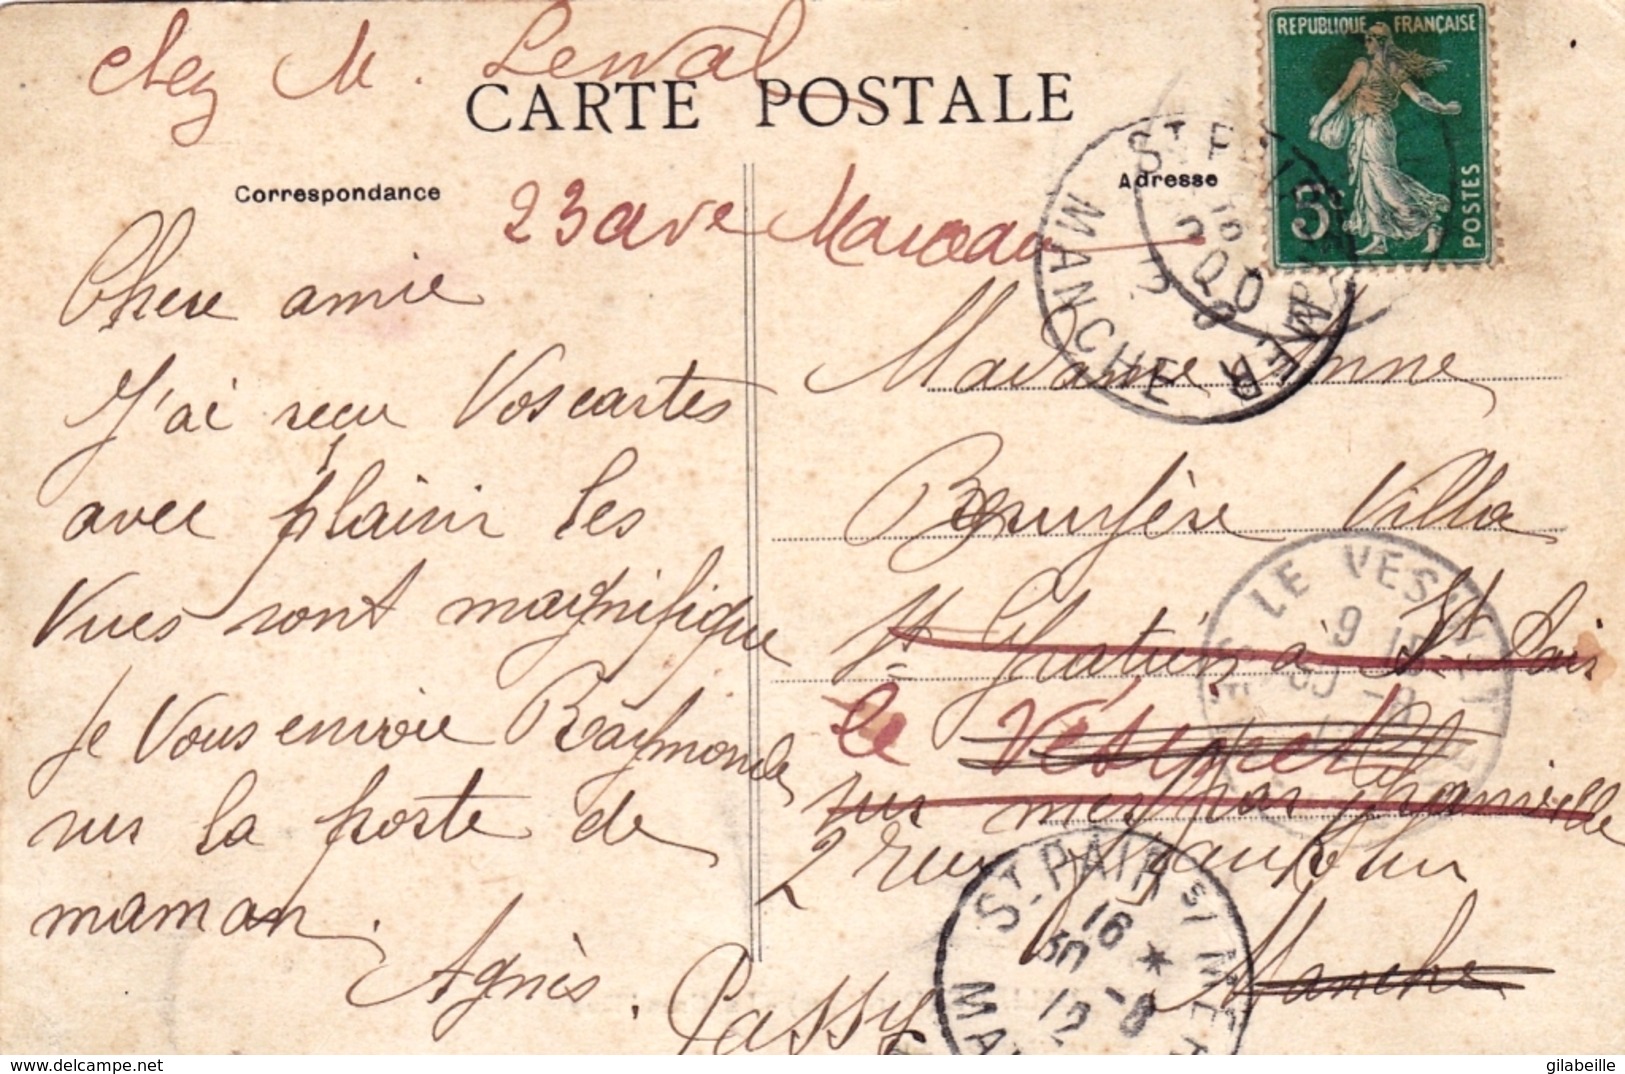 chez M. Lerval
CARTE POSTALE
REPUBLIQUE FRANÇAISE
5c
POSTES
Correspondance
Adresse
23 ave Marceau
MANCHE
Chere amie
Madame Anne
J'ai reçu Vos cartes
avec plaisir les
Villa
LE VESINET
9 15
30 -8
vues sont magnifique
St Gratien à St Pair
je vous envoie Raymonde
le Vésinet
sur la poste de
sur mer par Granville
2 rue
maman.
ST PAIR S/ MER
16
30
12 -8
MA
Manche
Agnès.
Passy
delcampe.net
gilabeille